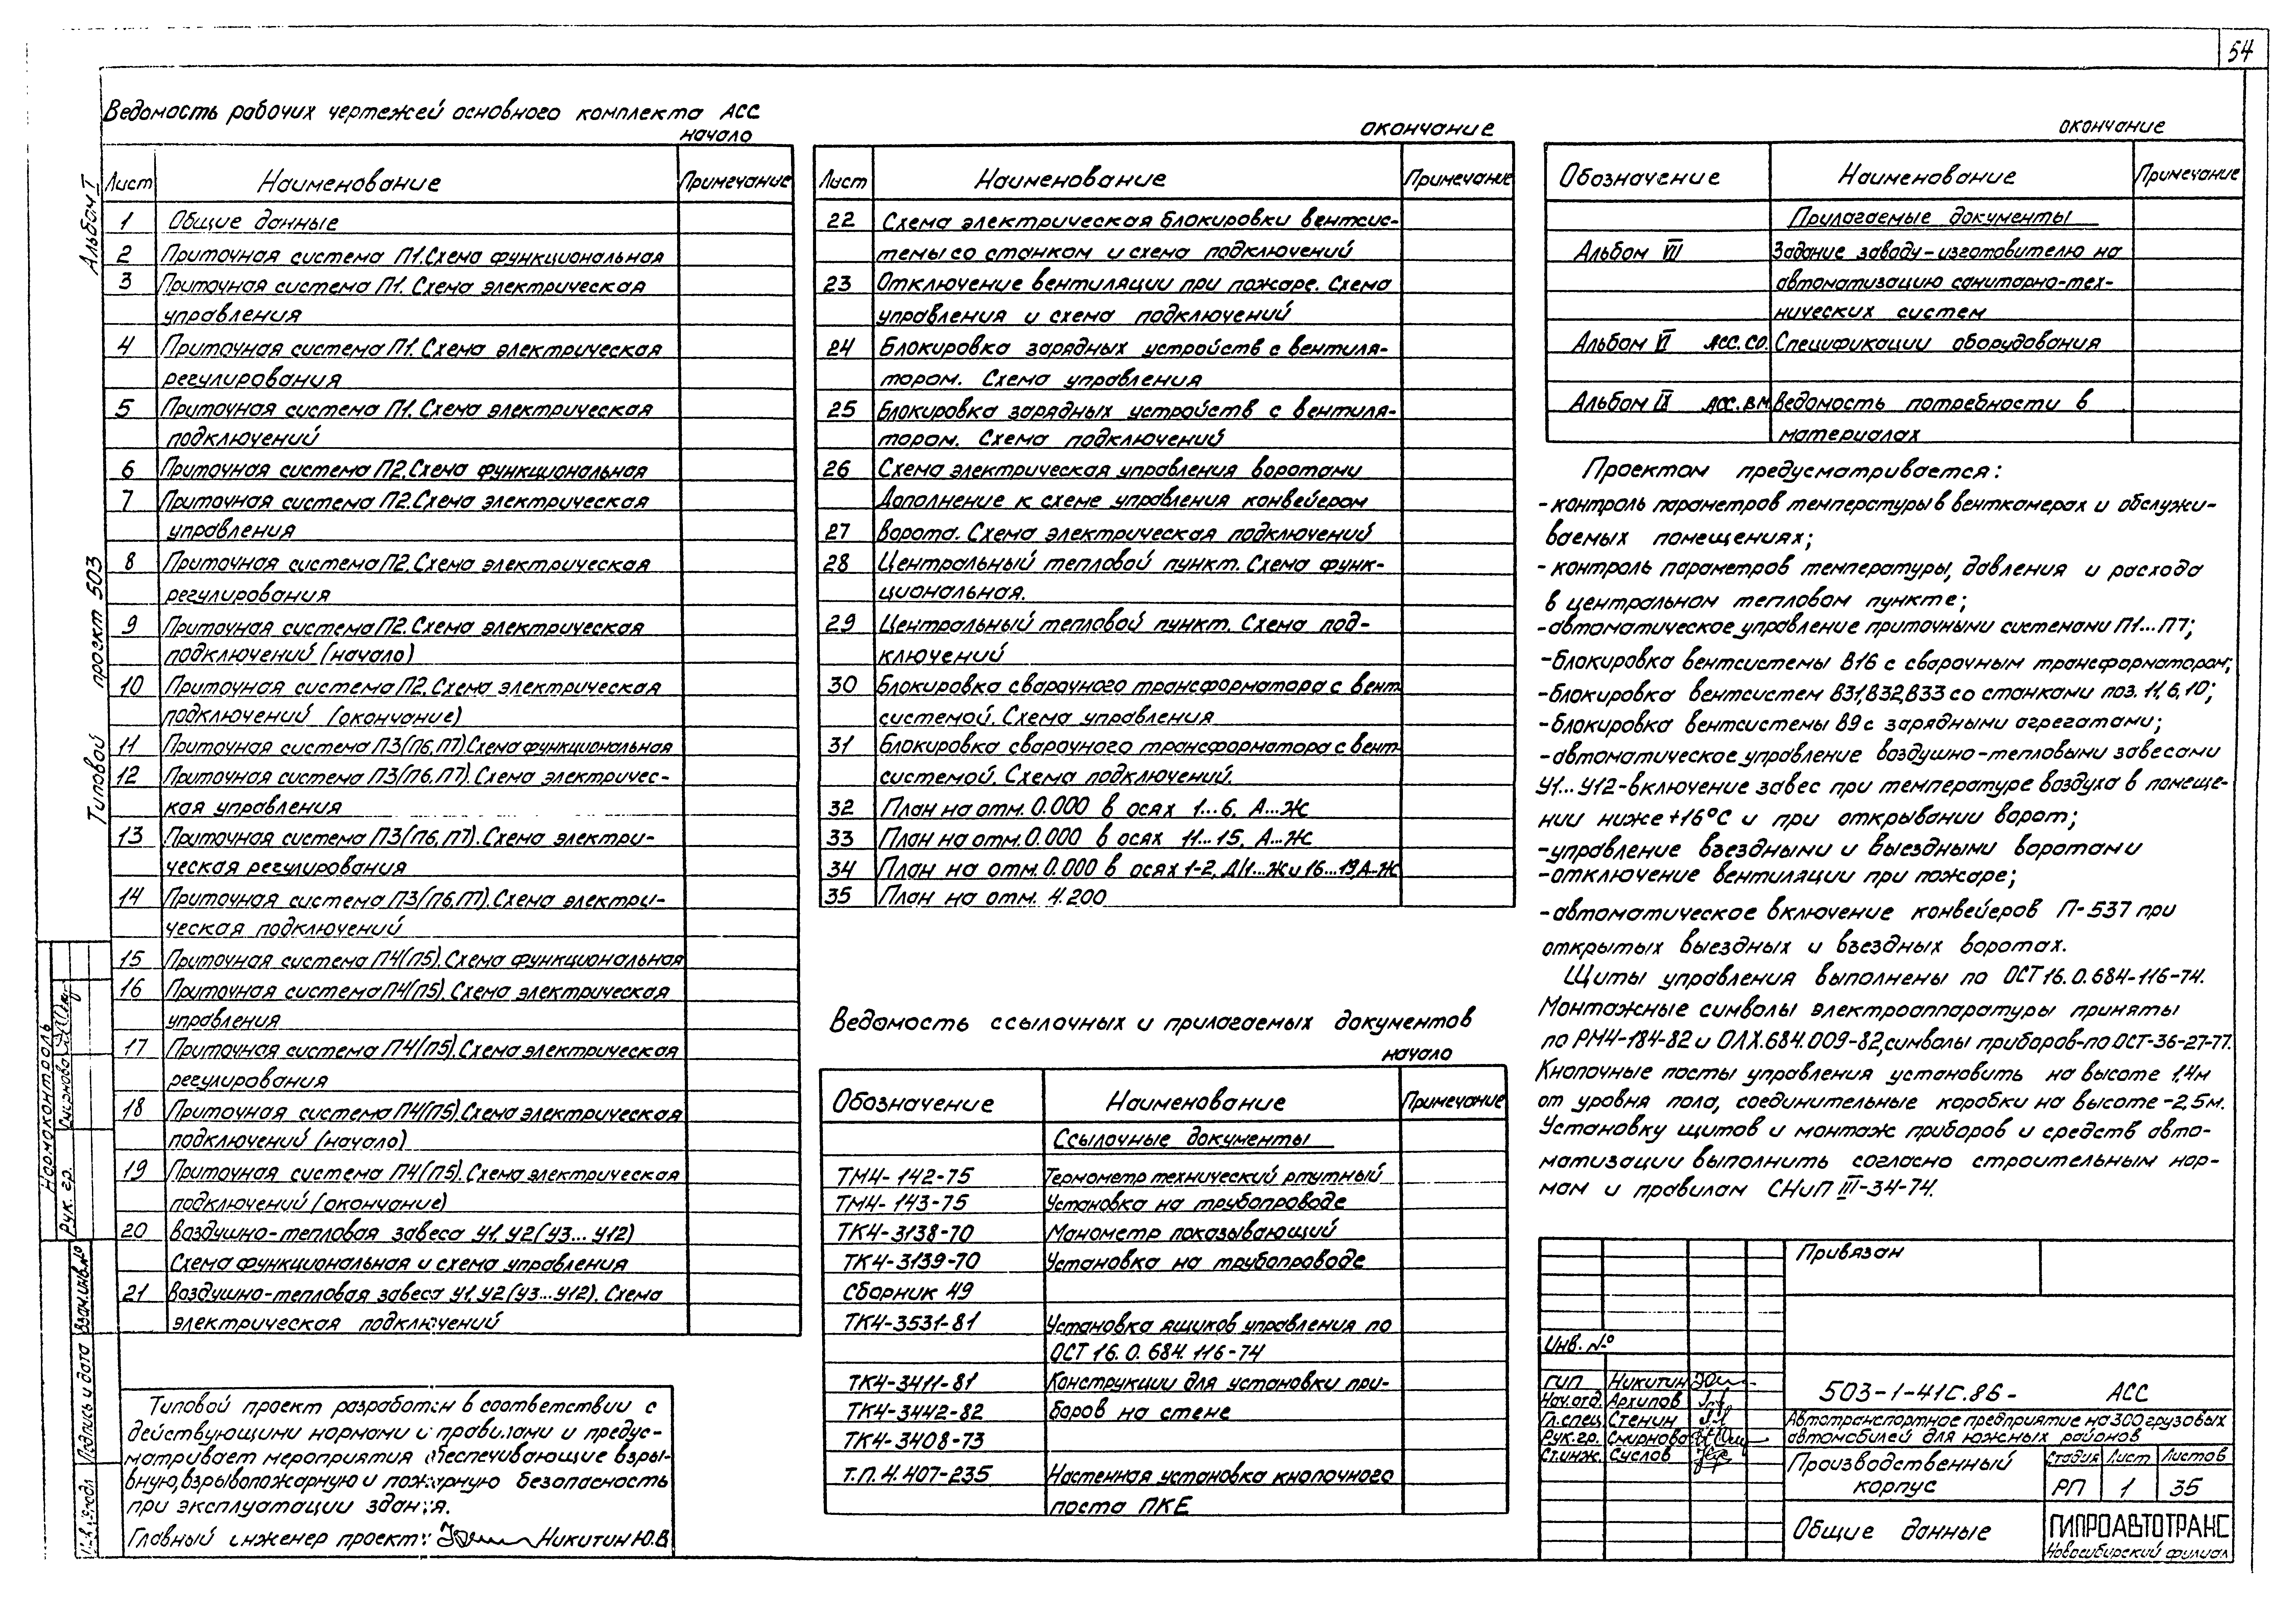 54
Ведомость рабочих чертежей основного комплекта АСС
начало
Лист Наименование Примечание
1 Общие данные
2 Приточная система П1. Схема функциональная
3 Приточная система П1. Схема электрическая
управления
4 Приточная система П1. Схема электрическая
регулирования
5 Приточная система П1. Схема электрическая
подключений
6 Приточная система П2. Схема функциональная
7 Приточная система П2. Схема электрическая
управления
8 Приточная система П2. Схема электрическая
регулирования
9 Приточная система П2. Схема электрическая
подключений (начало)
10 Приточная система П2. Схема электрическая
подключений (окончание)
11 Приточная система П3(П6, П7). Схема функциональная
12 Приточная система П3(П6, П7). Схема электричес-
кая управления
13 Приточная система П3(П6, П7). Схема электри-
ческая регулирования
14 Приточная система П3(П6, П7). Схема электри-
ческая подключений
15 Приточная система П4(П5). Схема функциональная
16 Приточная система П4(П5). Схема электрическая
управления
17 Приточная система П4(П5). Схема электрическая
регулирования
18 Приточная система П4(П5). Схема электрическая
подключений (начало)
19 Приточная система П4(П5). Схема электрическая
подключений (окончание)
20 Воздушно-тепловая завеса У1, У2 (У3...У12)
Схема функциональная и схема управления
21 Воздушно-тепловая завеса У1, У2 (У3...У12). Схема
электрическая подключений
Типовой проект разработан в соответствии с
действующими нормами и правилами и предус-
матривает мероприятия обеспечивающие взры-
вную, взрывопожарную и пожарную безопасность
при эксплуатации здания.
Главный инженер проекта: Никитин Ю.В
окончание
Лист Наименование Примечание
22 Схема электрическая блокировки вентсис-
темы со станком и схема подключений
23 Отключение вентиляции при пожаре. Схема
управления и схема подключений
24 Блокировка зарядных устройств с вентиля-
тором. Схема управления
25 Блокировка зарядных устройств с вентиля-
тором. Схема подключений
26 Схема электрическая управления воротами
Дополнение к схеме управления конвейером
27 Ворота. Схема электрическая подключений
28 Центральный тепловой пункт. Схема функ-
циональная.
29 Центральный тепловой пункт. Схема под-
ключений
30 Блокировка сварочного трансформатора с вент-
системой. Схема управления
31 Блокировка сварочного трансформатора с вент-
системой. Схема подключений.
32 План на отм. 0.000 в осях 1...6, А...Ж
33 План на отм. 0.000 в осях 11...15, А...Ж
34 План на отм. 0.000 в осях 1-2, Д/1...Ж и 16...19, А-Ж
35 План на отм. 4.200
Ведомость ссылочных и прилагаемых документов
начало
Обозначение Наименование Примечание
Ссылочные документы
ТМ4-142-75 Термометр технический ртутный
ТМ4-143-75 Установка на трубопроводе
ТК4-3138-70 Манометр показывающий
ТК4-3139-70 Установка на трубопроводе
Сборник 49
ТК4-3531-81 Установка ящиков управления по
ОСТ 16. 0. 684. 116-74
ТК4-3411-81 Конструкции для установки при-
ТК4-3442-82 боров на стене
ТК4-3408-73
Т.П. 4.407-235 Настенная установка кнопочного
поста ПКЕ
окончание
Обозначение Наименование Примечание
Прилагаемые документы
Альбом VII Задание заводу-изготовителю на
автоматизацию санитарно-тех-
нических систем
Альбом VI АСС.СО. Спецификации оборудования
Альбом IX АСС.ВМ Ведомость потребности в
материалах
Проектом предусматривается:
- контроль параметров температуры в венткамерах и обслужи-
ваемых помещениях;
- контроль параметров температуры, давления и расхода
в центральном тепловом пункте;
- автоматическое управление приточными системами П1...П7;
- блокировка вентсистемы В16 с сварочным трансформатором;
- блокировка вентсистем В31, В32, В33 со станками поз. 11, 6, 10;
- блокировка вентсистемы В9 с зарядными агрегатами;
- автоматическое управление воздушно-тепловыми завесами
У1...У12-включение завес при температуре воздуха в помеще-
нии ниже +16°С и при открывании ворот;
- управление въездными и выездными воротами
- отключение вентиляции при пожаре;
- автоматическое включение конвейеров П-537 при
открытых выездных и въездных воротах.
Щиты управления выполнены по ОСТ 16. 0. 684-116-74.
Монтажные символы электроаппаратуры приняты
по РМ4-184-82 и ОЛХ.684.009-82, символы приборов-по ОСТ-36-27-77.
Кнопочные посты управления установить на высоте 1,4м
от уровня пола, соединительные коробки на высоте - 2,5м.
Установку щитов и монтаж приборов и средств авто-
матизации выполнить согласно строительным нор-
мам и правилам СНиП III-34-74.
Привязан
Инв. №
ГИП Никитин
Нач.отд. Архипов
Гл.спец. Стенин
Рук.гр. Смирнова
Ст.инж. Суслов
503-1-41с.86- АСС
Автотранспортное предприятие на 300 грузовых
автомобилей для южных районов
Производственный
корпус
Стадия Лист Листов
РП 1 35
Общие данные
ГИПРОАВТОТРАНС
Новосибирский филиал
Альбом I
Типовой проект 503
Нормоконтроль
Рук. гр. Смирнова
Взам.инв.№
Подпись и дата